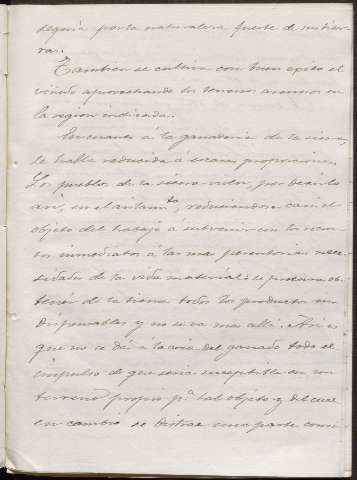 sequia por la naturaleza fuerte de sus tier-
ras.
Tambien se cultiva con buen exito el
viñedo aprovechando los terrenos arenosos en
la region indicada.
En cuanto á la ganaderia de la sierra,
se halla reducida á escasas proporciones.
Los pueblos de la sierra viven, por decirlo
asi, en el aislamto, reduciendose casi el
objeto del trabajo á subvenir con los recur-
sos inmediatos á las mas perentorias nece-
sidades de la vida material: se procura ob-
tener de la tierra todos los productos in-
dispensables y no se va mas allá. Asi es
que no se dá á la cria del ganado todo el
impulso de que seria susceptible en un
terreno propio pa tal objeto y del cual
en cambio se distrae una parte consi-